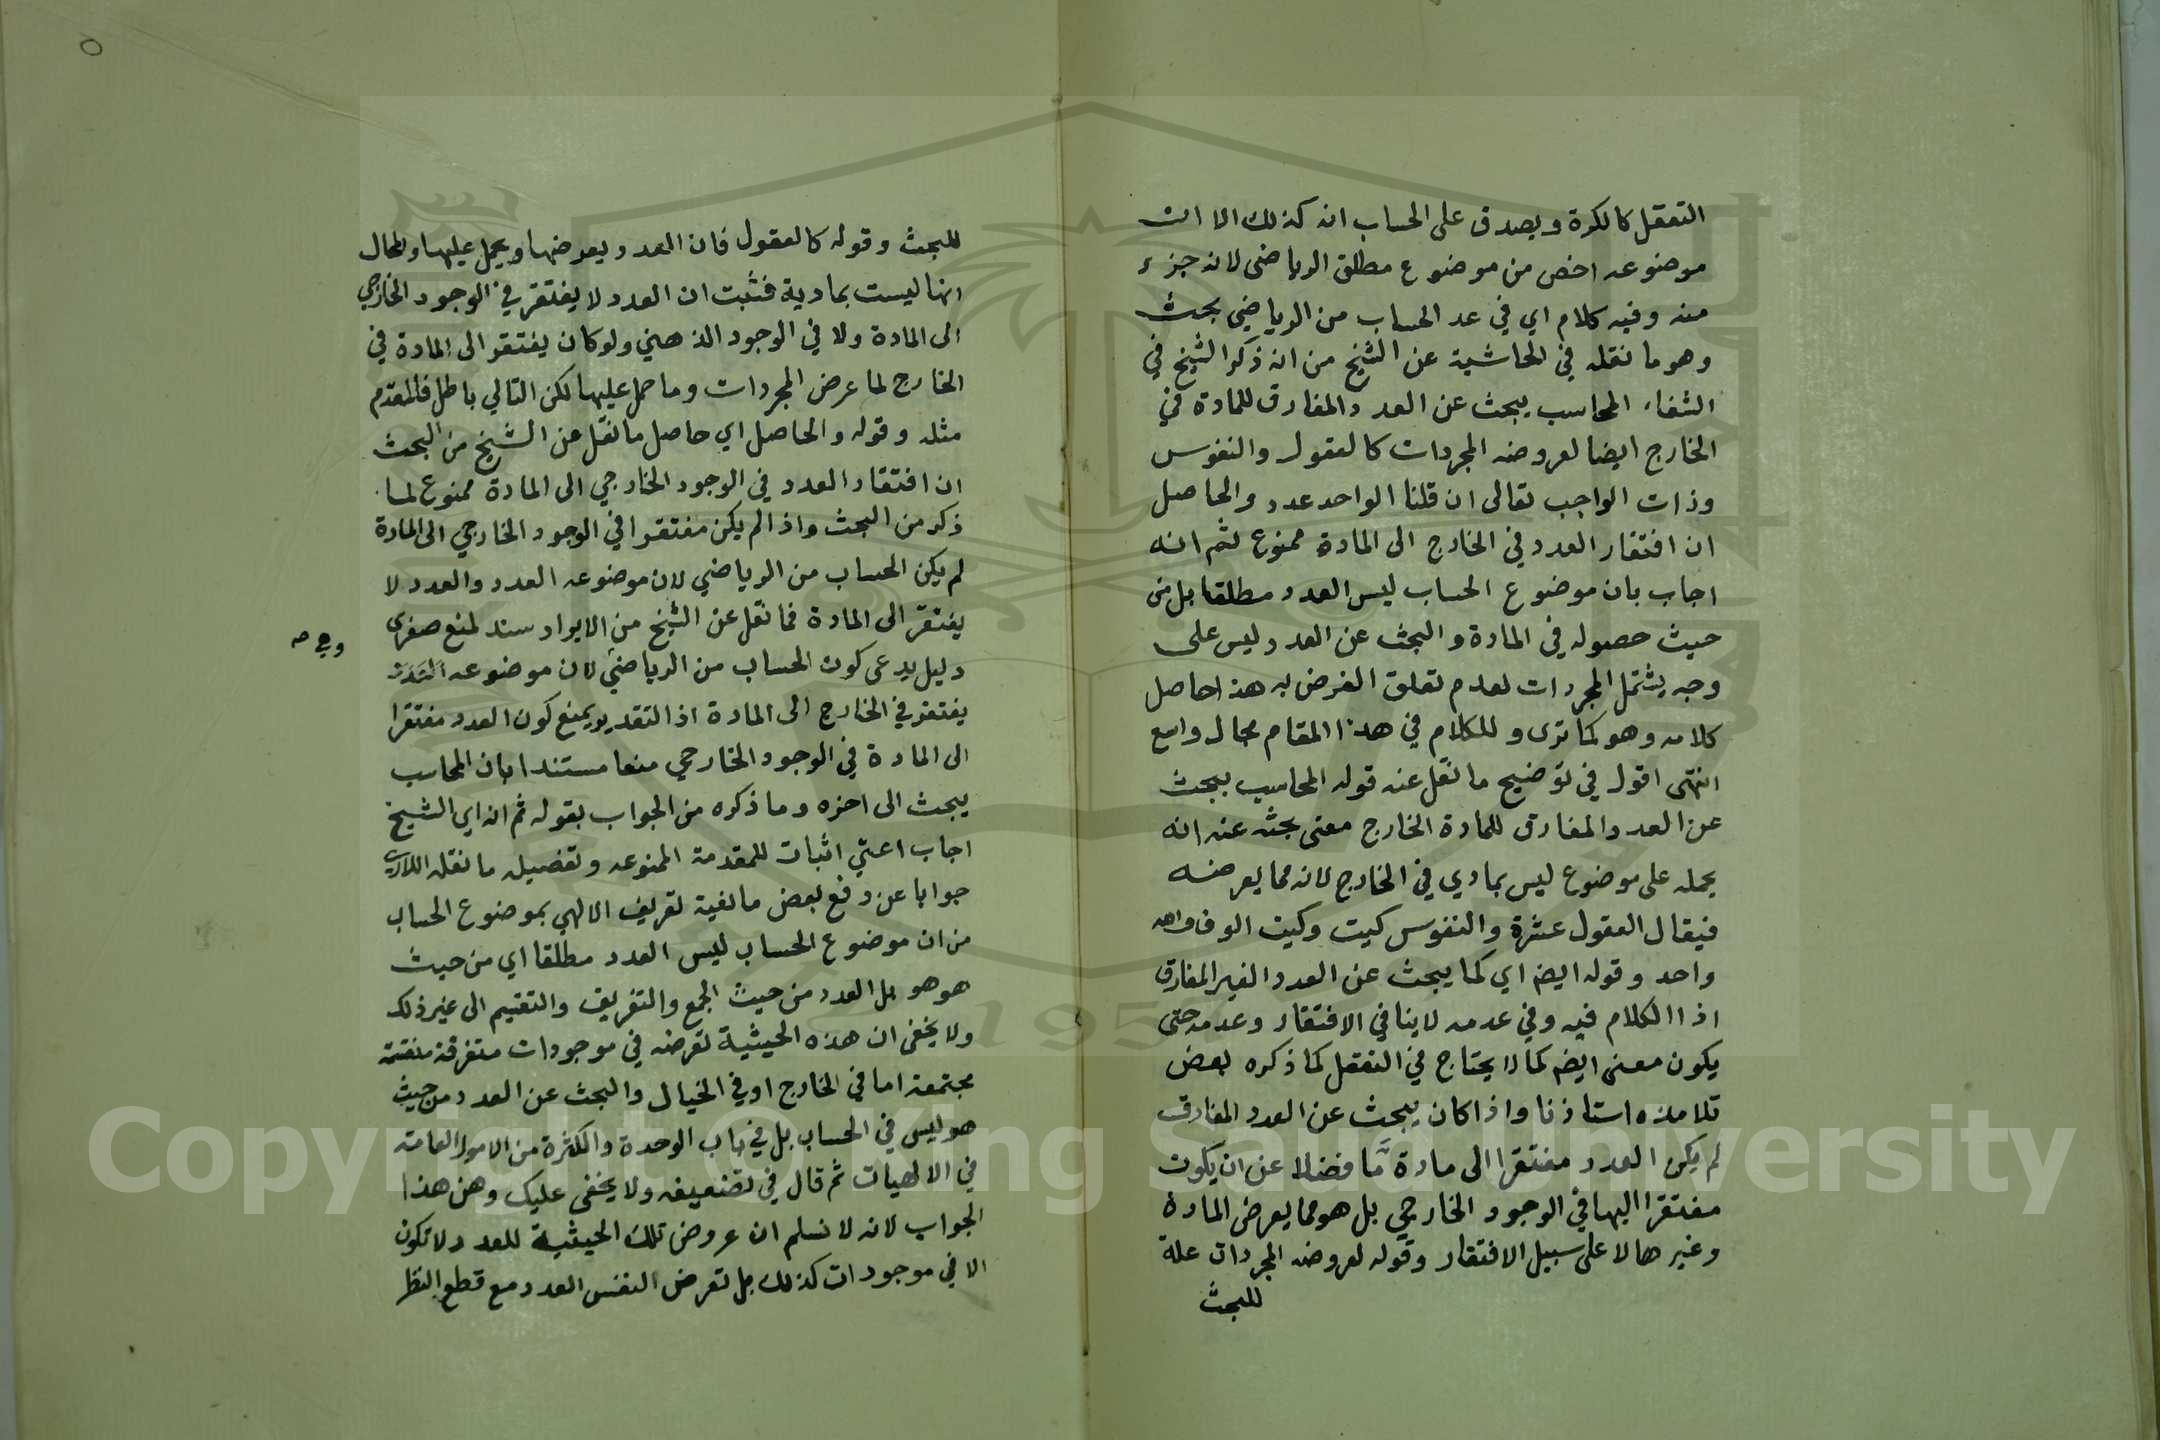 التعقل كالكرة ويصدق على الحساب انه كذلك الا ان
موضوعه اخص من موضوع مطلق الرياضى لانه جزء
منه وفيه كلام اي في عد الحساب من الرياضي بحث
وهو ما نقله في الحاشية عن الشيخ من انه ذكر الشيخ في
الشفاء المحاسب يبحث عن العدد المفارق للمادة في
الخارج ايضا لعروضه المجردات كالعقول والنفوس
وذات الواجب تعالى ان قلنا الواحد عدد والحاصل
ان افتقار العدد في الخارج الى المادة ممنوع ثم انه
اجاب بان موضوع الحساب ليس العدد مطلقا بل من
حيث حصوله في المادة والبحث عن العدد ليس على
وجه يشتمل المجردات لعدم تعلق الغرض به هذا حاصل
كلامه وهو كما ترى وللكلام في هذا المقام مجال واسع
انتهى اقول في توضيح ما نقل عنه قوله المحاسب يبحث
عن العدد المفارق للمادة الخارج معنى بحثه عنه انه
يحمله على موضوع ليس بمادي في الخارج لانه مما يعرضه
فيقال العقول عشرة والنفوس كيت وكيت الوف والله
واحد وقوله ايضم اي كما يبحث عن العدد الغير المفارق
اذ الكلام فيه وفي عدمه لاينافي الافتقار وعدمه حتى
يكون معنى ايضم كما لا يحتاج في التعقل كما ذكره بعض
تلامذه استاذنا واذا كان يبحث عن العدد المفارق
لم يكن العدد مفتقرا الى مادة مّا فضلا عن ان يكون
مفتقرا اليها في الوجود الخارجي بل هو مما يعرض المادة
وغيرها لا على سبيل الافتقار وقوله لعروضه المجردات علة
للبحث
للبحث وقوله كالعقول فان العدد يعرضها ويحمل عليها والحال
انها ليست بمادية فثبت ان العدد لا يفتقر في الوجود الخارجي
الى المادة ولا في الوجود الذهني ولو كان يفتقر الى المادة في
الخارج لما عرض المجردات وما حمل عليها لكن التالي باطل فالمقدم
مثله وقوله والحاصل اي حاصل ما نقل عن الشيخ من البحث
ان افتقار العدد في الوجود الخارجي الى المادة ممنوع لما
ذكر من البحث واذا لم يكن مفتقرا في الوجود الخارجي الى المادة
لم يكن الحساب من الرياضي لان موضوعه العدد والعدد لا
يفتقر الى المادة فما نقل عن الشيخ من الايراد سند لمنع صغرى
دليل يدعى كون الحساب من الرياضي لان موضوعه العدد
يفتقر في الخارج الى المادة اذ التقدير يمنع كون العدد مفتقرا
الى المادة في الوجود الخارجي منعا مستندا بان المحاسب
يبحث الى اخره وما ذكره من الجواب بقوله ثم انه اي الشيخ
اجاب اعني اثبات للمقدمة الممنوعه وتفصيله ما نقله اللاري
جوابا عن دفع بعض مالفية تعريف الالهي بموضوع الحساب
من ان موضوع الحساب ليس العدد مطلقا اي من حيث
هو هو بل العدد من حيث الجمع والتفريق والتقيم الى غير ذلك
ولا يخفى ان هذه الحيثية تعرضه في موجودات متفرقة منقسمة
مجتمعة اما في الخارج او في الخيال والبحث عن العدد من حيث
هو ليس في الحساب بل في باب الوحدة والكثرة من الامور العامة
في الالهيات ثم قال في تضعيفه ولا يخفى عليك وهن هذا
الجواب لانه لا نسلم ان عروض تلك الحيثية للعدد لا تكون
الا في موجودات كذلك بل تعرض النفس العدد مع قطع النظر
Copyright © King Saud University
195